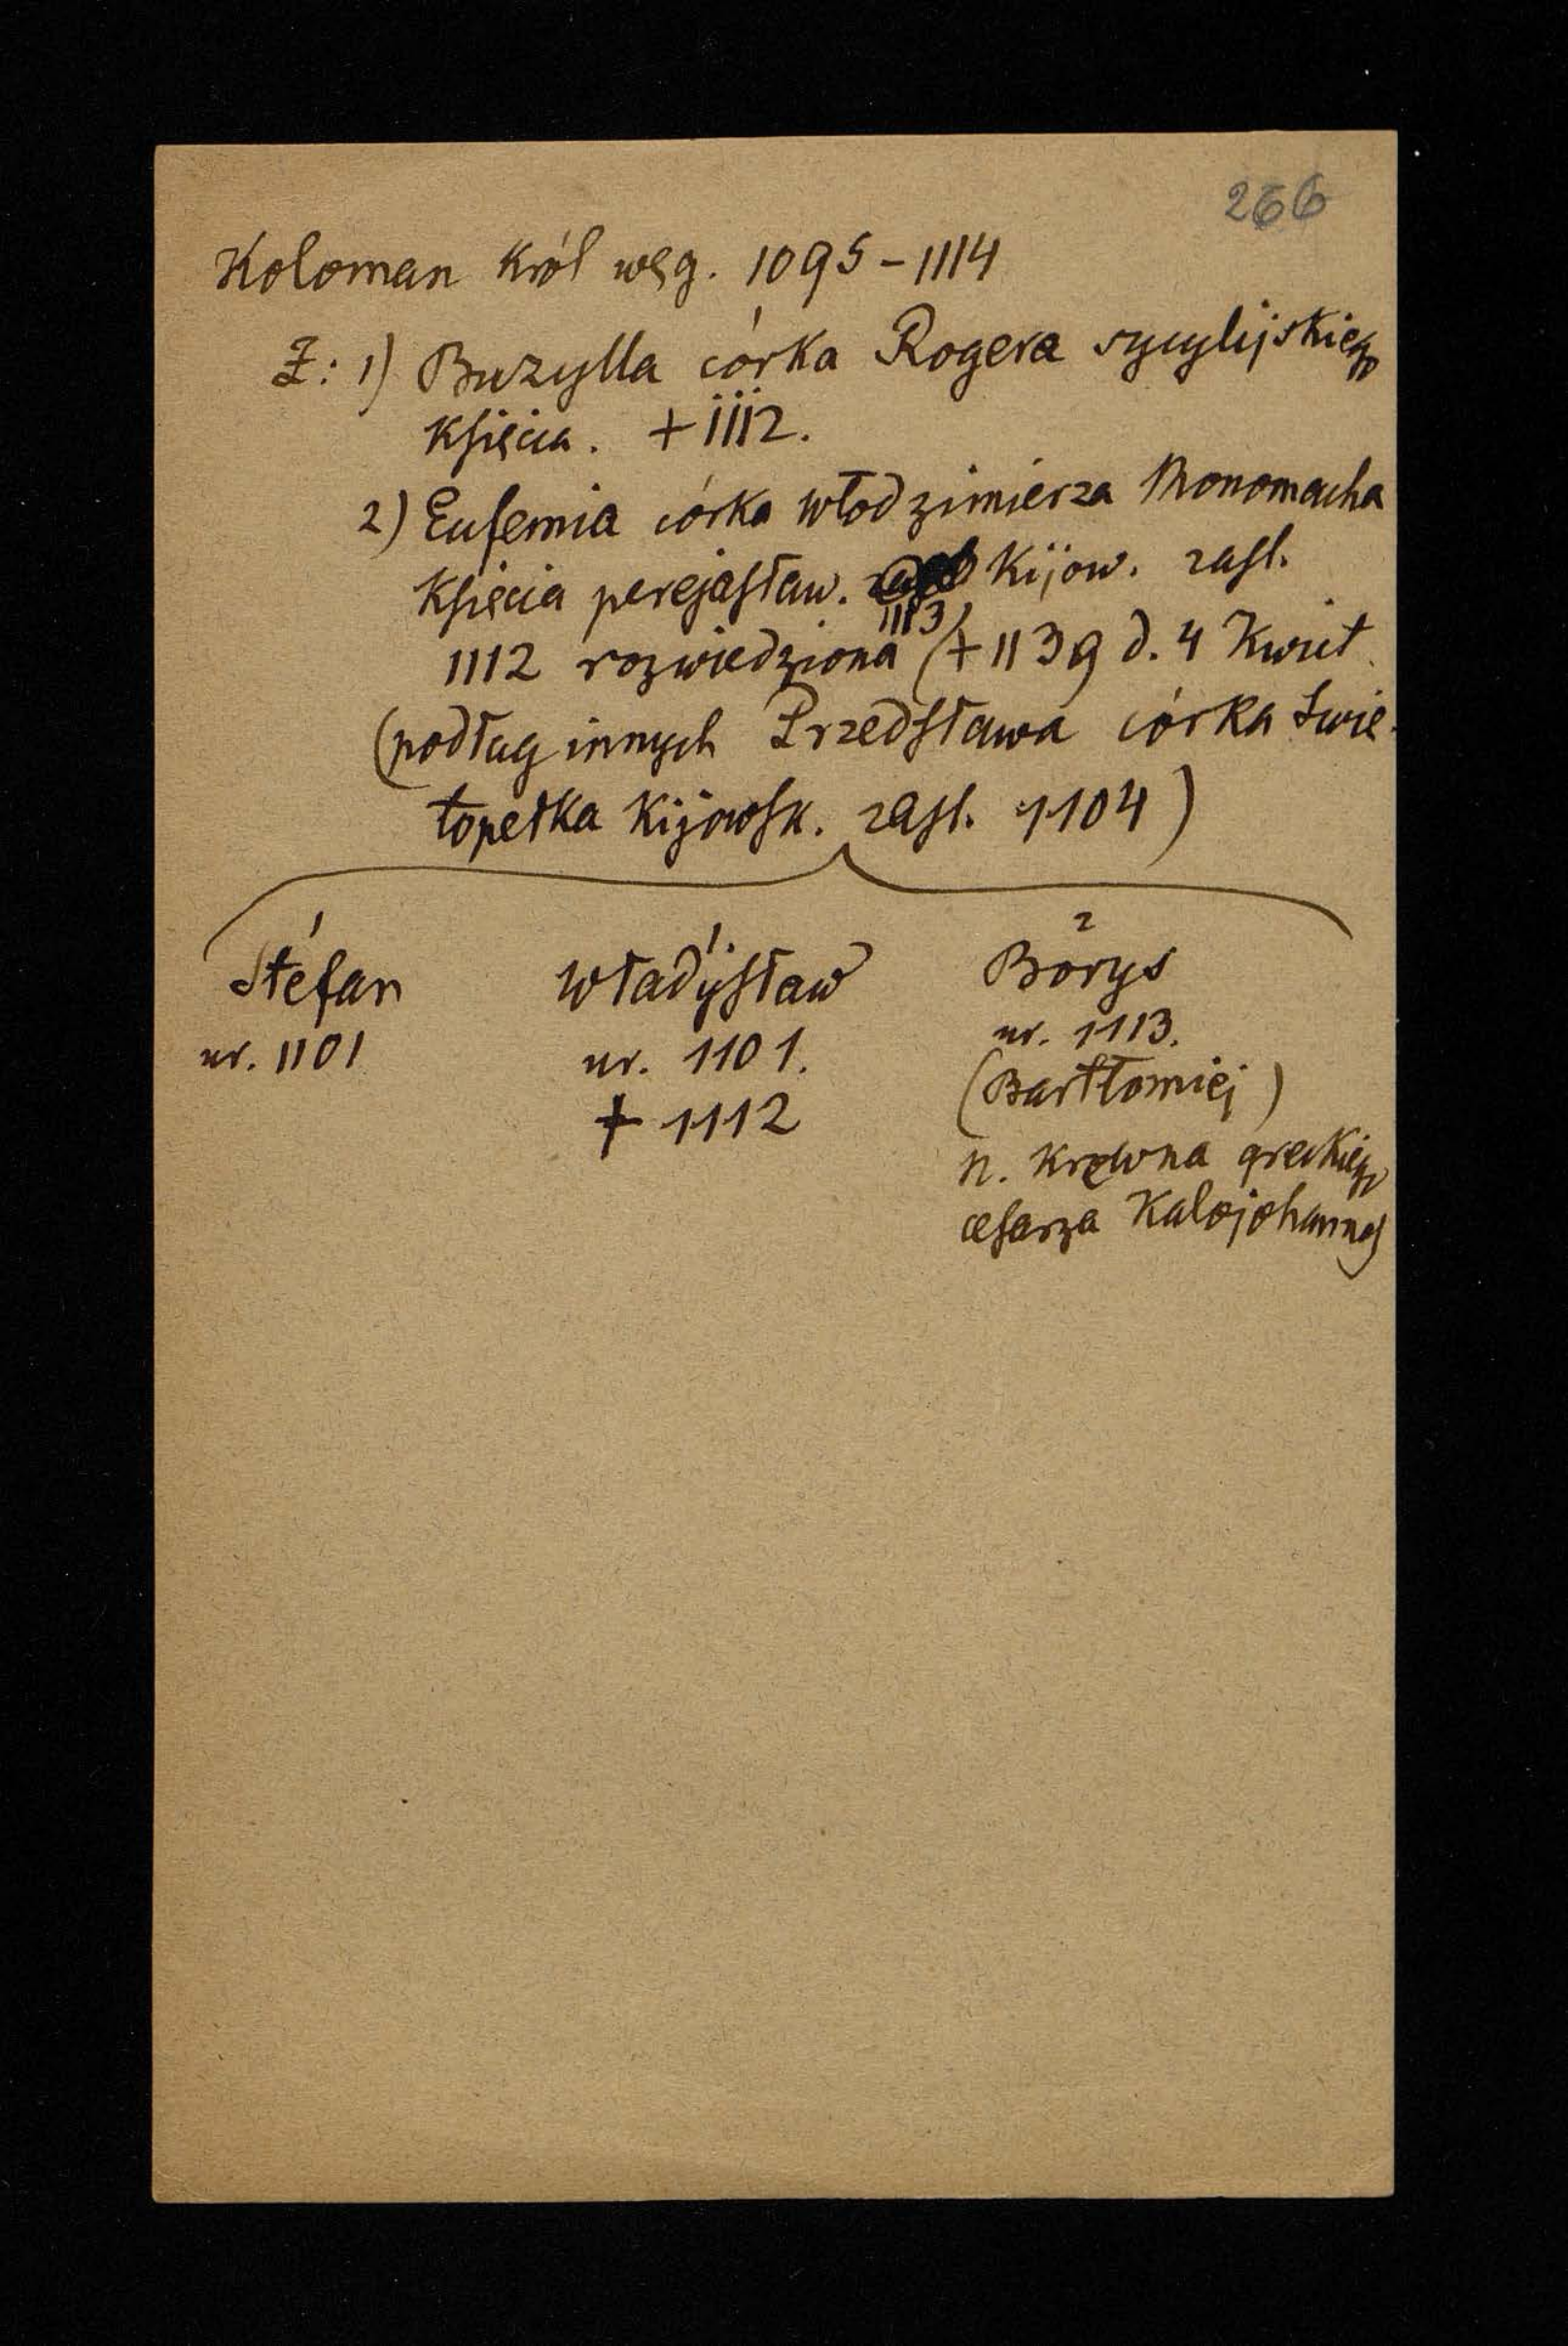 266
Koloman król węg. 1095-1114
Ż: 1) Buzylla córka Rogera sycylijskiego
Księcia. + 1112.
2) Eufemia córka Włodzimierza Monomacha
Księcia perejasław. Kijow. zasl.
1112 rozwiedziona 1113 (+ 1139 d. 4 Kwiet.
(podług innych Przedsława córka Świę-
topełka Kijowsk. zasl. 1104)
1 1 2
Stefan Władysław Borys
ur. 1101 ur. 1101. ur. 1113.
+ 1112 (Bartłomiej)
N. krewna greckiego
cesarza Kalojohannes